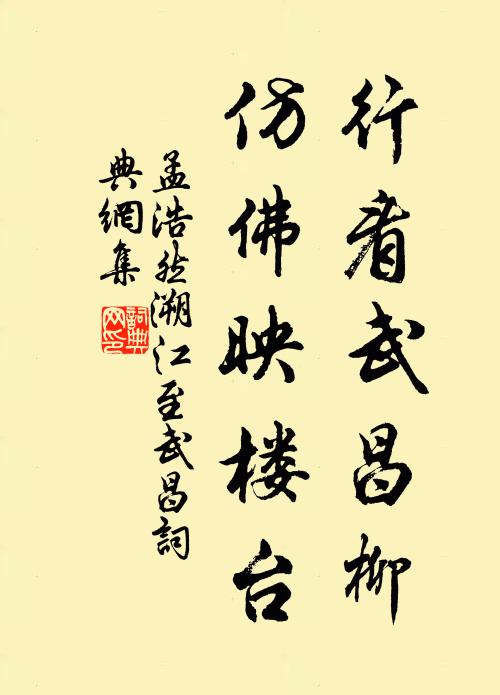 行看武昌柳
仿佛映楼台
孟浩然溯江至武昌詞
典網集
詞典
网印